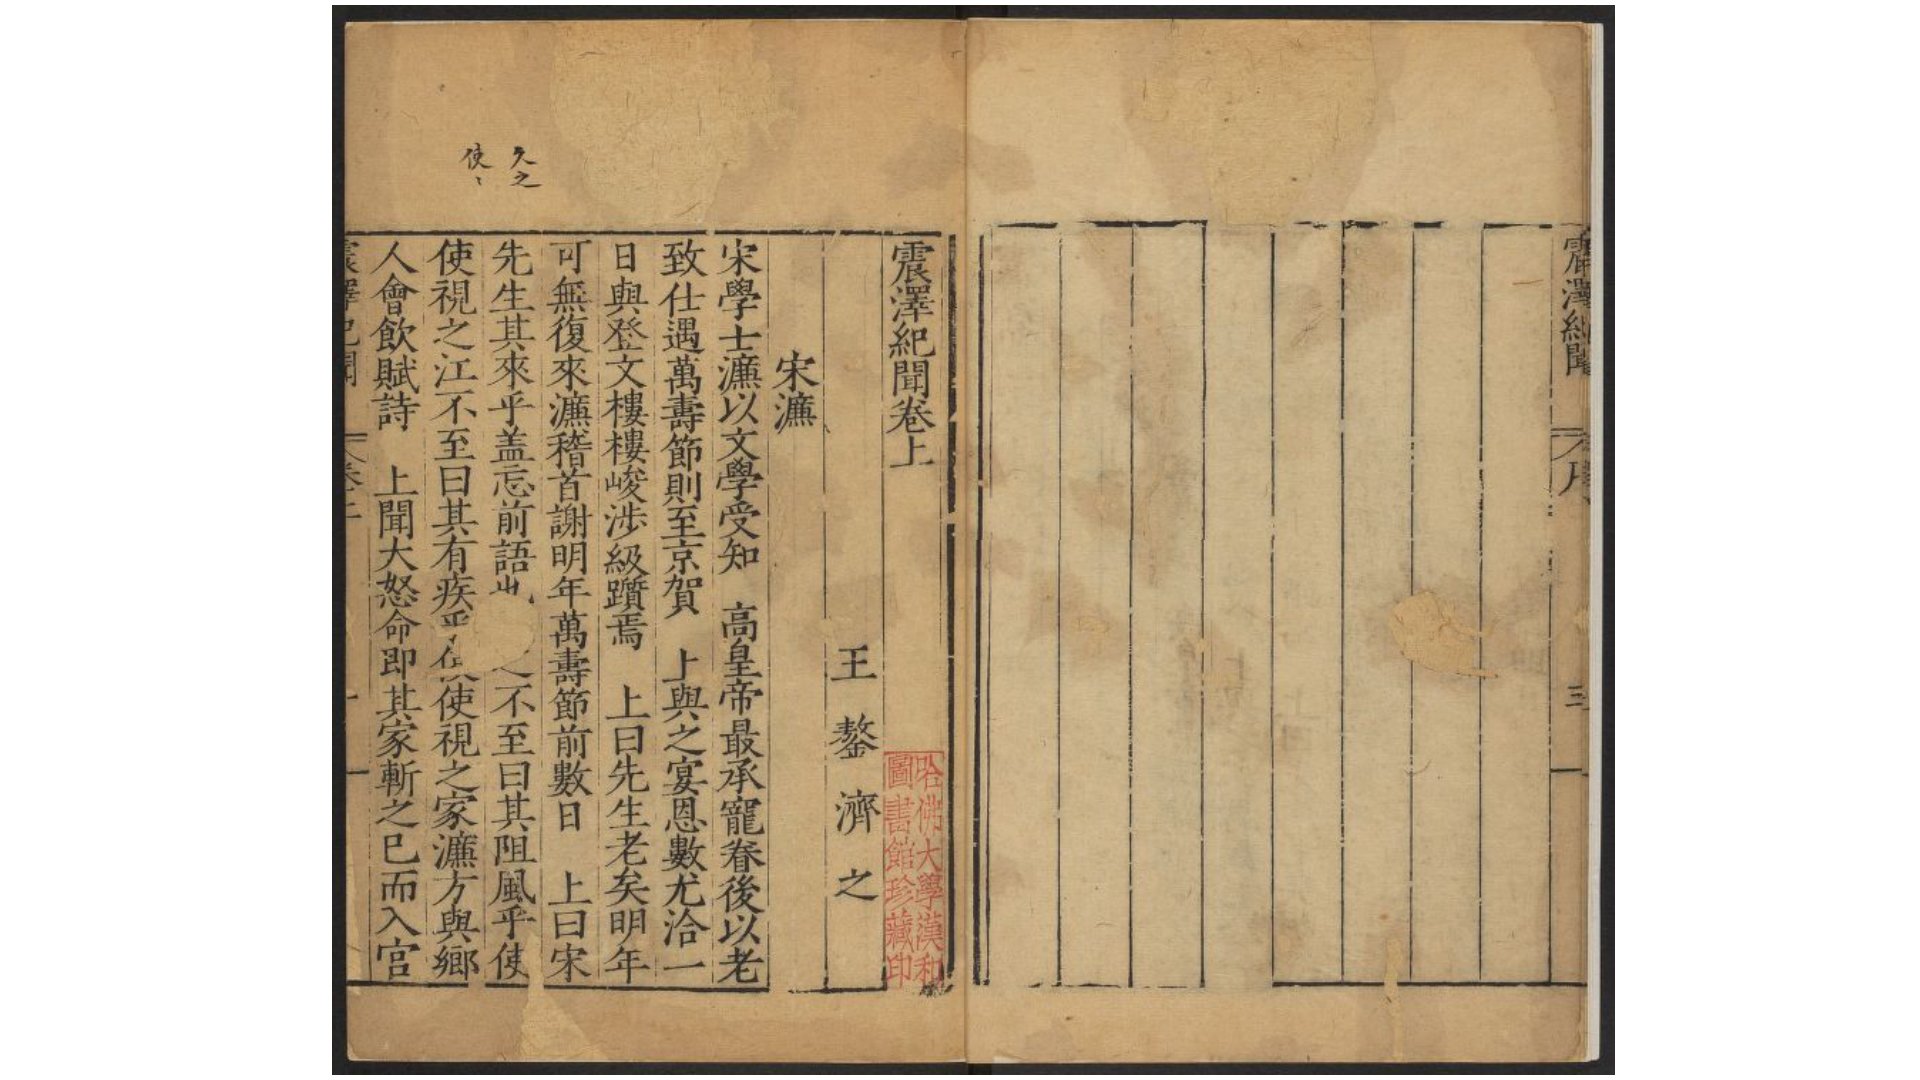 震澤紀聞
序
三
震澤紀聞卷上
哈佛大學漢和
圖書館珍藏印
王鏊濟之
宋濂
宋學士濂以文學受知 高皇帝最承寵眷後以老
致仕遇萬壽節則至京賀 上與之宴恩數尤洽一
日與登文樓樓峻涉級躓焉 上曰先生老矣明年
可無復來濂稽首謝明年萬壽節前數日 上曰宋
先生其來乎盖忘前語 不至曰其阻風乎使
使視之江不至曰其有疾 使視之家濂方與鄉
人會飲賦詩 上聞大怒命即其家斬之巳而入宮
久之
使
震澤紀聞
卷上
一